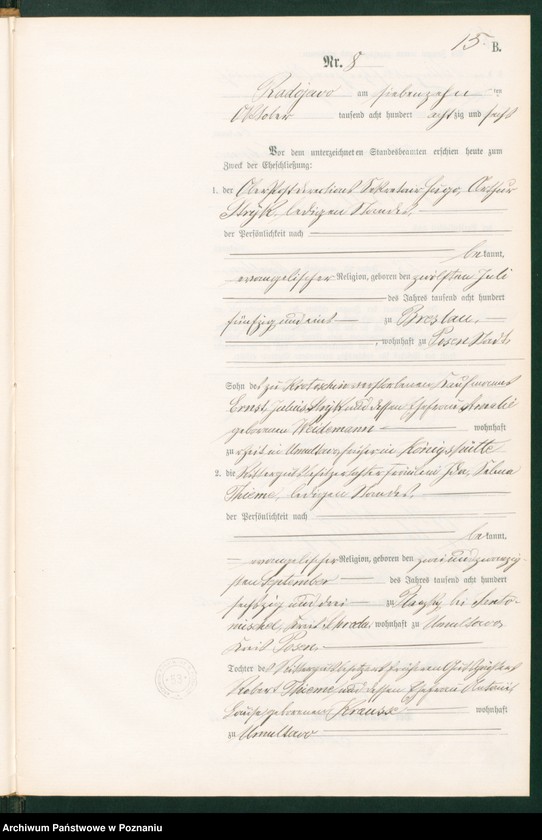 15.
B.
Nr. 8
Radojewo am siebenzehn ten
Oktober tausend acht hundert achtzig und sechs
Vor dem unterzeichneten Standesbeamten erschien heute zum
Zweck der Eheschließung:
1. der Oberpostdirections Sekretair Hugo, Arthur
ledigen Standes,
der Persönlichkeit nach
bekannt,
evangelischer Religion, geboren den zwölften Juli
des Jahres tausend acht hundert
fünfzig und eins zu Breslau,
, wohnhaft zu Posen Stadt,
Sohn des zu Krotoschin verstorbenen Kaufmanns
Ernst, Julius und dessen Ehefrau Amalie
geborenen Weidemann wohnhaft
zu zeit in Umultowo früher in Königshütte
2. die Rittergutsbesitzertochter Fräulein Ida, Selma
Thieme, ledigen Standes,
der Persönlichkeit nach
bekannt,
evangelischer Religion, geboren den zweiundzwanzig-
sten September des Jahres tausend acht hundert
sechszig und drei zu bei
Kreis Schroda, wohnhaft zu Umultowo,
Kreis Posen.
Tochter des Rittergutsbesitzers früheren
Robert Thieme und dessen Ehefrau Antonie
Louise geborenen Krause wohnhaft
zu Umultowo
Archiwum Państwowe w Poznaniu
www.szukajwarchiwach.pl